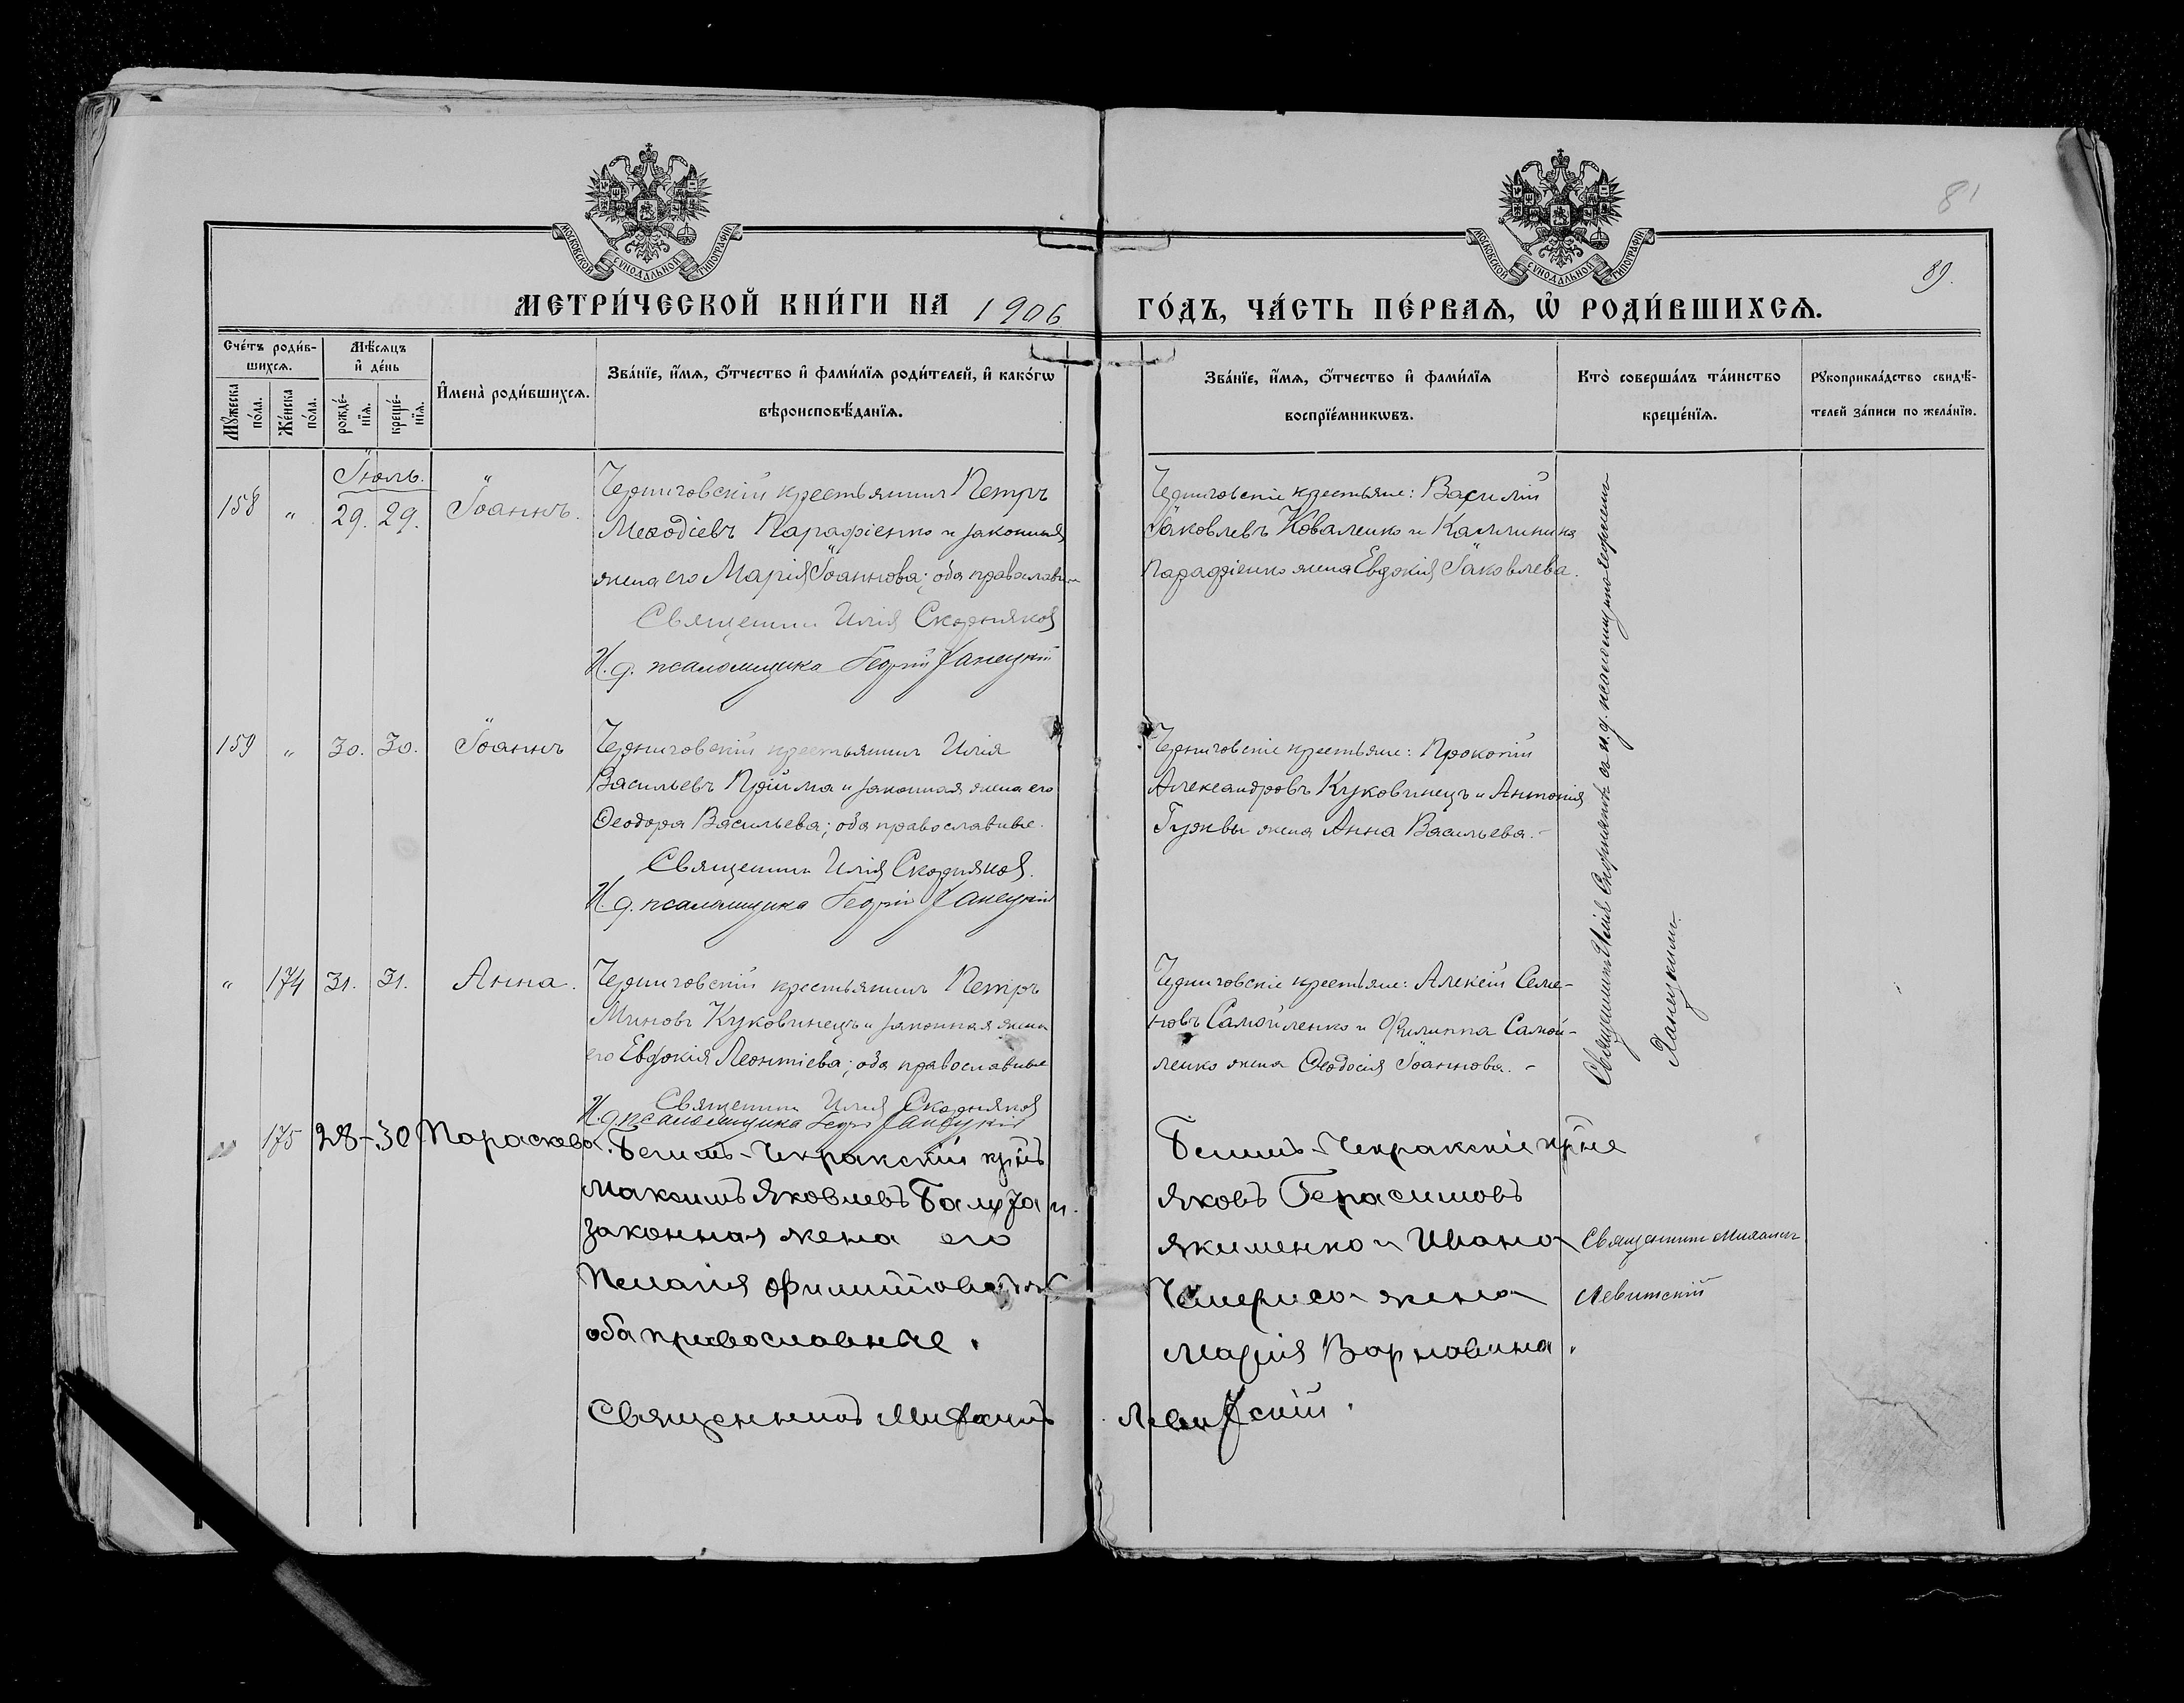 81
89.
МОСКОВСКОЙ СѴНОДАЛЬНОЙ ТИПОГРАФІИ
МОСКОВСКОЙ СѴНОДАЛЬНОЙ ТИПОГРАФІИ
МЕТРИ́ЧЕСКОЙ КНИ́ГИ НА 1906 ГО́ДЪ, ЧА́СТЬ ПЕ́РВАѦ, Ѡ҆ РОДИ́ВШИХСѦ.
Сче́тъ роди́в-
шихсѧ.
Мꙋ́жеска по́ла.
Же́нска по́ла.
Мѣ́сѧцъ
и҆ де́нь
рожде́-
нїѧ.
креще́-
нїѧ.
И҆мена̀ роди́вшихсѧ.
Зва́нїе, и҆́мѧ, ѻ҆́тчество и҆ фами́лїѧ роди́телей, и҆ како́гѡ
вѣроисповѣ́данїѧ.
Зва́нїе, и҆́мѧ, ѻ҆́тчество и҆ фами́лїѧ
воспрїе́мникѡвъ.
Кто̀ соверша́лъ та́инство
креще́нїѧ.
Рꙋкоприкла́дство свидѣ́-
телей за́писи по жела́нїю.
Іюль.
158 " 29. 29. Іоаннъ.
Черниговскій крестьянинъ Петръ
Меѳодіевъ Парафіенко и законная
жена его Марія Іоаннова; оба православн
Священникъ Илія Скорняков
И. д. псаломщика Георгій Ханецкій
Черниговскіе крестьяне: Василій
Іаковлевъ Коваленко и Каллиника
Парафіенко жена Евдокія Іаковлева.
159 " 30. 30. Іоаннъ
Черниговскій крестьянинъ Илія
Васильевъ Прійма и законная жена его
Ѳеодора Васильева; оба православные.
Священникъ Илія Скорняков.
И. д. псаломщика Георгій Ханецкій
Черниговскіе крестьяне: Прокопій
Александровъ Куковинецъ и Антонія
Гужвы жена Анна Васильева.-
" 174 31. 31. Анна.
Черниговскій крестьянинъ Петръ
Миновъ Куковинецъ и законная жена
его Евдокія Леонтіева; оба православные
Священникъ Илія Скорняков
И. д. псаломщика Георгій Ханецкій
Черниговскіе крестьяне: Алексій Семе-
новъ Самойленко и Филиппа Самой-
ленко жена Ѳеодосія Іоаннова. -
Священникъ Илія Скорняковъ съ и. д. псаломщика Георгіемъ
Ханецкимъ.
" 175 28-30 Параскева.
Бешъ-Чекракскій кр-нъ
Максимъ Яковлевъ и
законная жена его
Пелагія
оба православные.
Бешъ-Чекракскіе кр-не
Яковъ Герасимовъ
Якименко и Ивана
жена
Марія
Священникъ Михаилъ
Левитскій
Священникъ Михаилъ Левитскій.